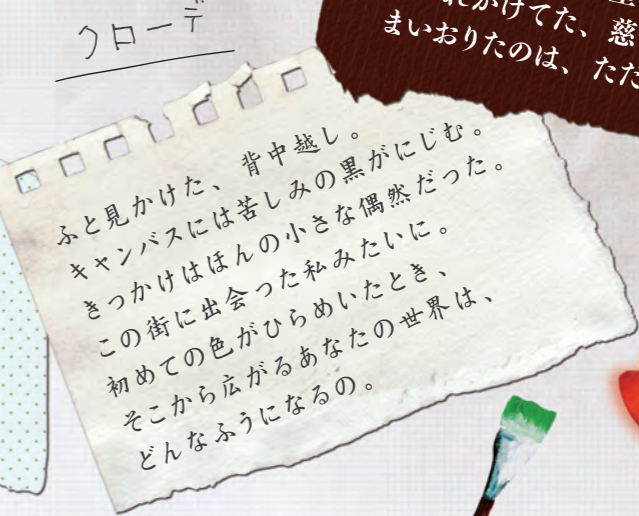 クローデ
れかけてた、慈
まいおりたのは、ただ
ふと見かけた、背中越し。
キャンバスには苦しみの黒がにじむ。
きっかけはほんの小さな偶然だった。
この街に出会った私みたいに。
初めての色がひらめいたとき、
そこから広がるあなたの世界は、
どんなふうになるの。